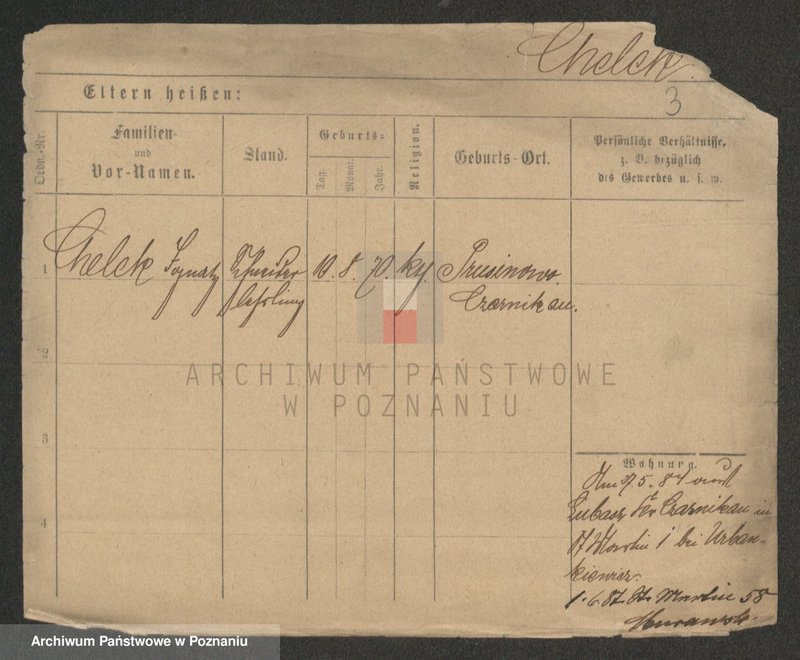 Chelck
3
Eltern heißen:
Ordn.-Nr.
Familien-
und
Vor-Namen.
Stand.
Geburts-
Tag.
Monat.
Jahr.
Religion.
Geburts-Ort.
Persönliche Verhältnisse,
z. B. bezüglich
des Gewerbes u. s. w.
1 Chelck Ignatz Schneider 10. 8. 70 Prusinowo.
lehrling Czarnikau.
2
3
4
ARCHIWUM PAŃSTWOWE
W POZNANIU
Wohnung.
5. 84
Lubasz Kr Czarnikau in
St Martin 1 bei Urban-
kiewicz.
1.6.87 St. Martin 58
Archiwum Państwowe w Poznaniu